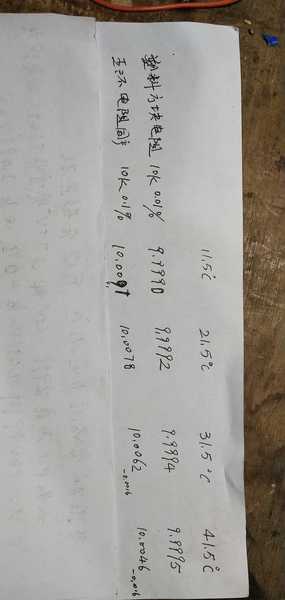 11.5℃ 21.5℃ 31.5℃ 41.5℃
塑料方块电阻 10K 0.01% 9.9990 9.9992 9.9994 9.9995
五环电阻 10K 0.1% 10.0091 10.0078 10.0062 -0.0016 10.0046 -0.0016